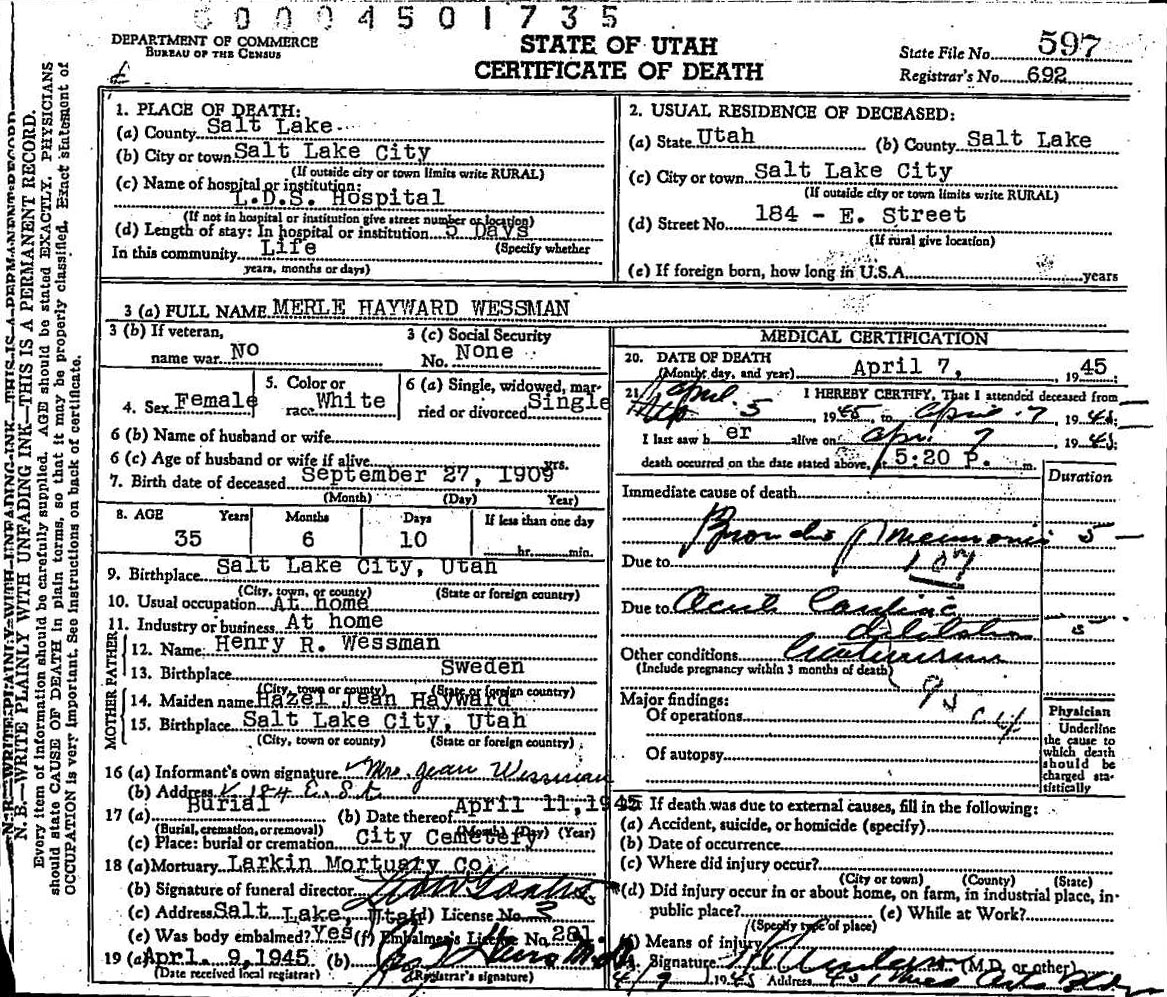 60004501735
DEPARTMENT OF COMMERCE
BUREAU OF THE CENSUS
STATE OF UTAH
CERTIFICATE OF DEATH
State File No. 597
Registrar's No. 692
N. B.—WRITE PLAINLY WITH UNFADING INK—THIS IS A PERMANENT RECORD.
Every item of information should be carefully supplied. AGE should be stated EXACTLY. PHYSICIANS
should state CAUSE OF DEATH in plain terms, so that it may be properly classified. Exact statement of
OCCUPATION is very important. See instructions on back of certificate.
1. PLACE OF DEATH:
(a) County Salt Lake
(b) City or town Salt Lake City
(If outside city or town limits write RURAL)
(c) Name of hospital or institution:
L.D.S. Hospital
(If not in hospital or institution give street number or location)
(d) Length of stay: In hospital or institution 5 Days
(Specify whether
In this community Life
years, months or days)
2. USUAL RESIDENCE OF DECEASED:
(a) State Utah (b) County Salt Lake
(c) City or town Salt Lake City
(If outside city or town limits write RURAL)
(d) Street No. 184 - E. Street
(If rural give location)
(e) If foreign born, how long in U.S.A. years
3 (a) FULL NAME MERLE HAYWARD WESSMAN
3 (b) If veteran,
name war No
3 (c) Social Security
No. None
4. Sex Female
5. Color or
race White
6 (a) Single, widowed, mar-
ried or divorced Single
6 (b) Name of husband or wife
6 (c) Age of husband or wife if alive yrs.
7. Birth date of deceased September 27, 1909
(Month) (Day) Year)
8. AGE Years Months Days If less than one day
35 6 10 hr. min.
9. Birthplace Salt Lake City, Utah
(City, town, or county) (State or foreign country)
10. Usual occupation At home
11. Industry or business At home
FATHER
12. Name: Henry R. Wessman
13. Birthplace Sweden
(City, town or county) (State or foreign country)
MOTHER
14. Maiden name Hazel Jean Hayward
15. Birthplace Salt Lake City, Utah
(City, town or county) (State or foreign country)
16 (a) Informant's own signature Mrs. Jean Wessman
(b) Address 184 E. St
17 (a) Burial (b) Date thereof April 11, 1945
(Burial, cremation, or removal) (Month) (Day) (Year)
(c) Place: burial or cremation City Cemetery
18 (a) Mortuary Larkin Mortuary Co.
(b) Signature of funeral director
(c) Address Salt Lake, Utah (d) License No. 2
(e) Was body embalmed? Yes (f) Embalmer's License No. 281
19 (a) Aprl. 9, 1945 (b)
(Date received local registrar) (Registrar's signature)
MEDICAL CERTIFICATION
20. DATE OF DEATH
(Month, day, and year) April 7, 1945
21. I HEREBY CERTIFY, That I attended deceased from
April 5 1945, to April 7, 1945
I last saw her alive on Apr. 7 1945
death occurred on the date stated above, at 5:20 P. m.
Duration
Immediate cause of death
Broncho Pneumonia 5 —
Due to 107
Due to Acute Cardiac
dilatation 5
Other conditions
(Include pregnancy within 3 months of death)
Major findings:
Of operations
Of autopsy
Physician
Underline
the cause to
which death
should be
charged sta-
tistically
22. If death was due to external causes, fill in the following:
(a) Accident, suicide, or homicide (specify)
(b) Date of occurrence
(c) Where did injury occur?
(City or town) (County) (State)
(d) Did injury occur in or about home, on farm, in industrial place, in-
public place? (e) While at Work?
(Specify type of place)
(f) Means of injury
Signature (M.D. or other)
4/9 1945 Address